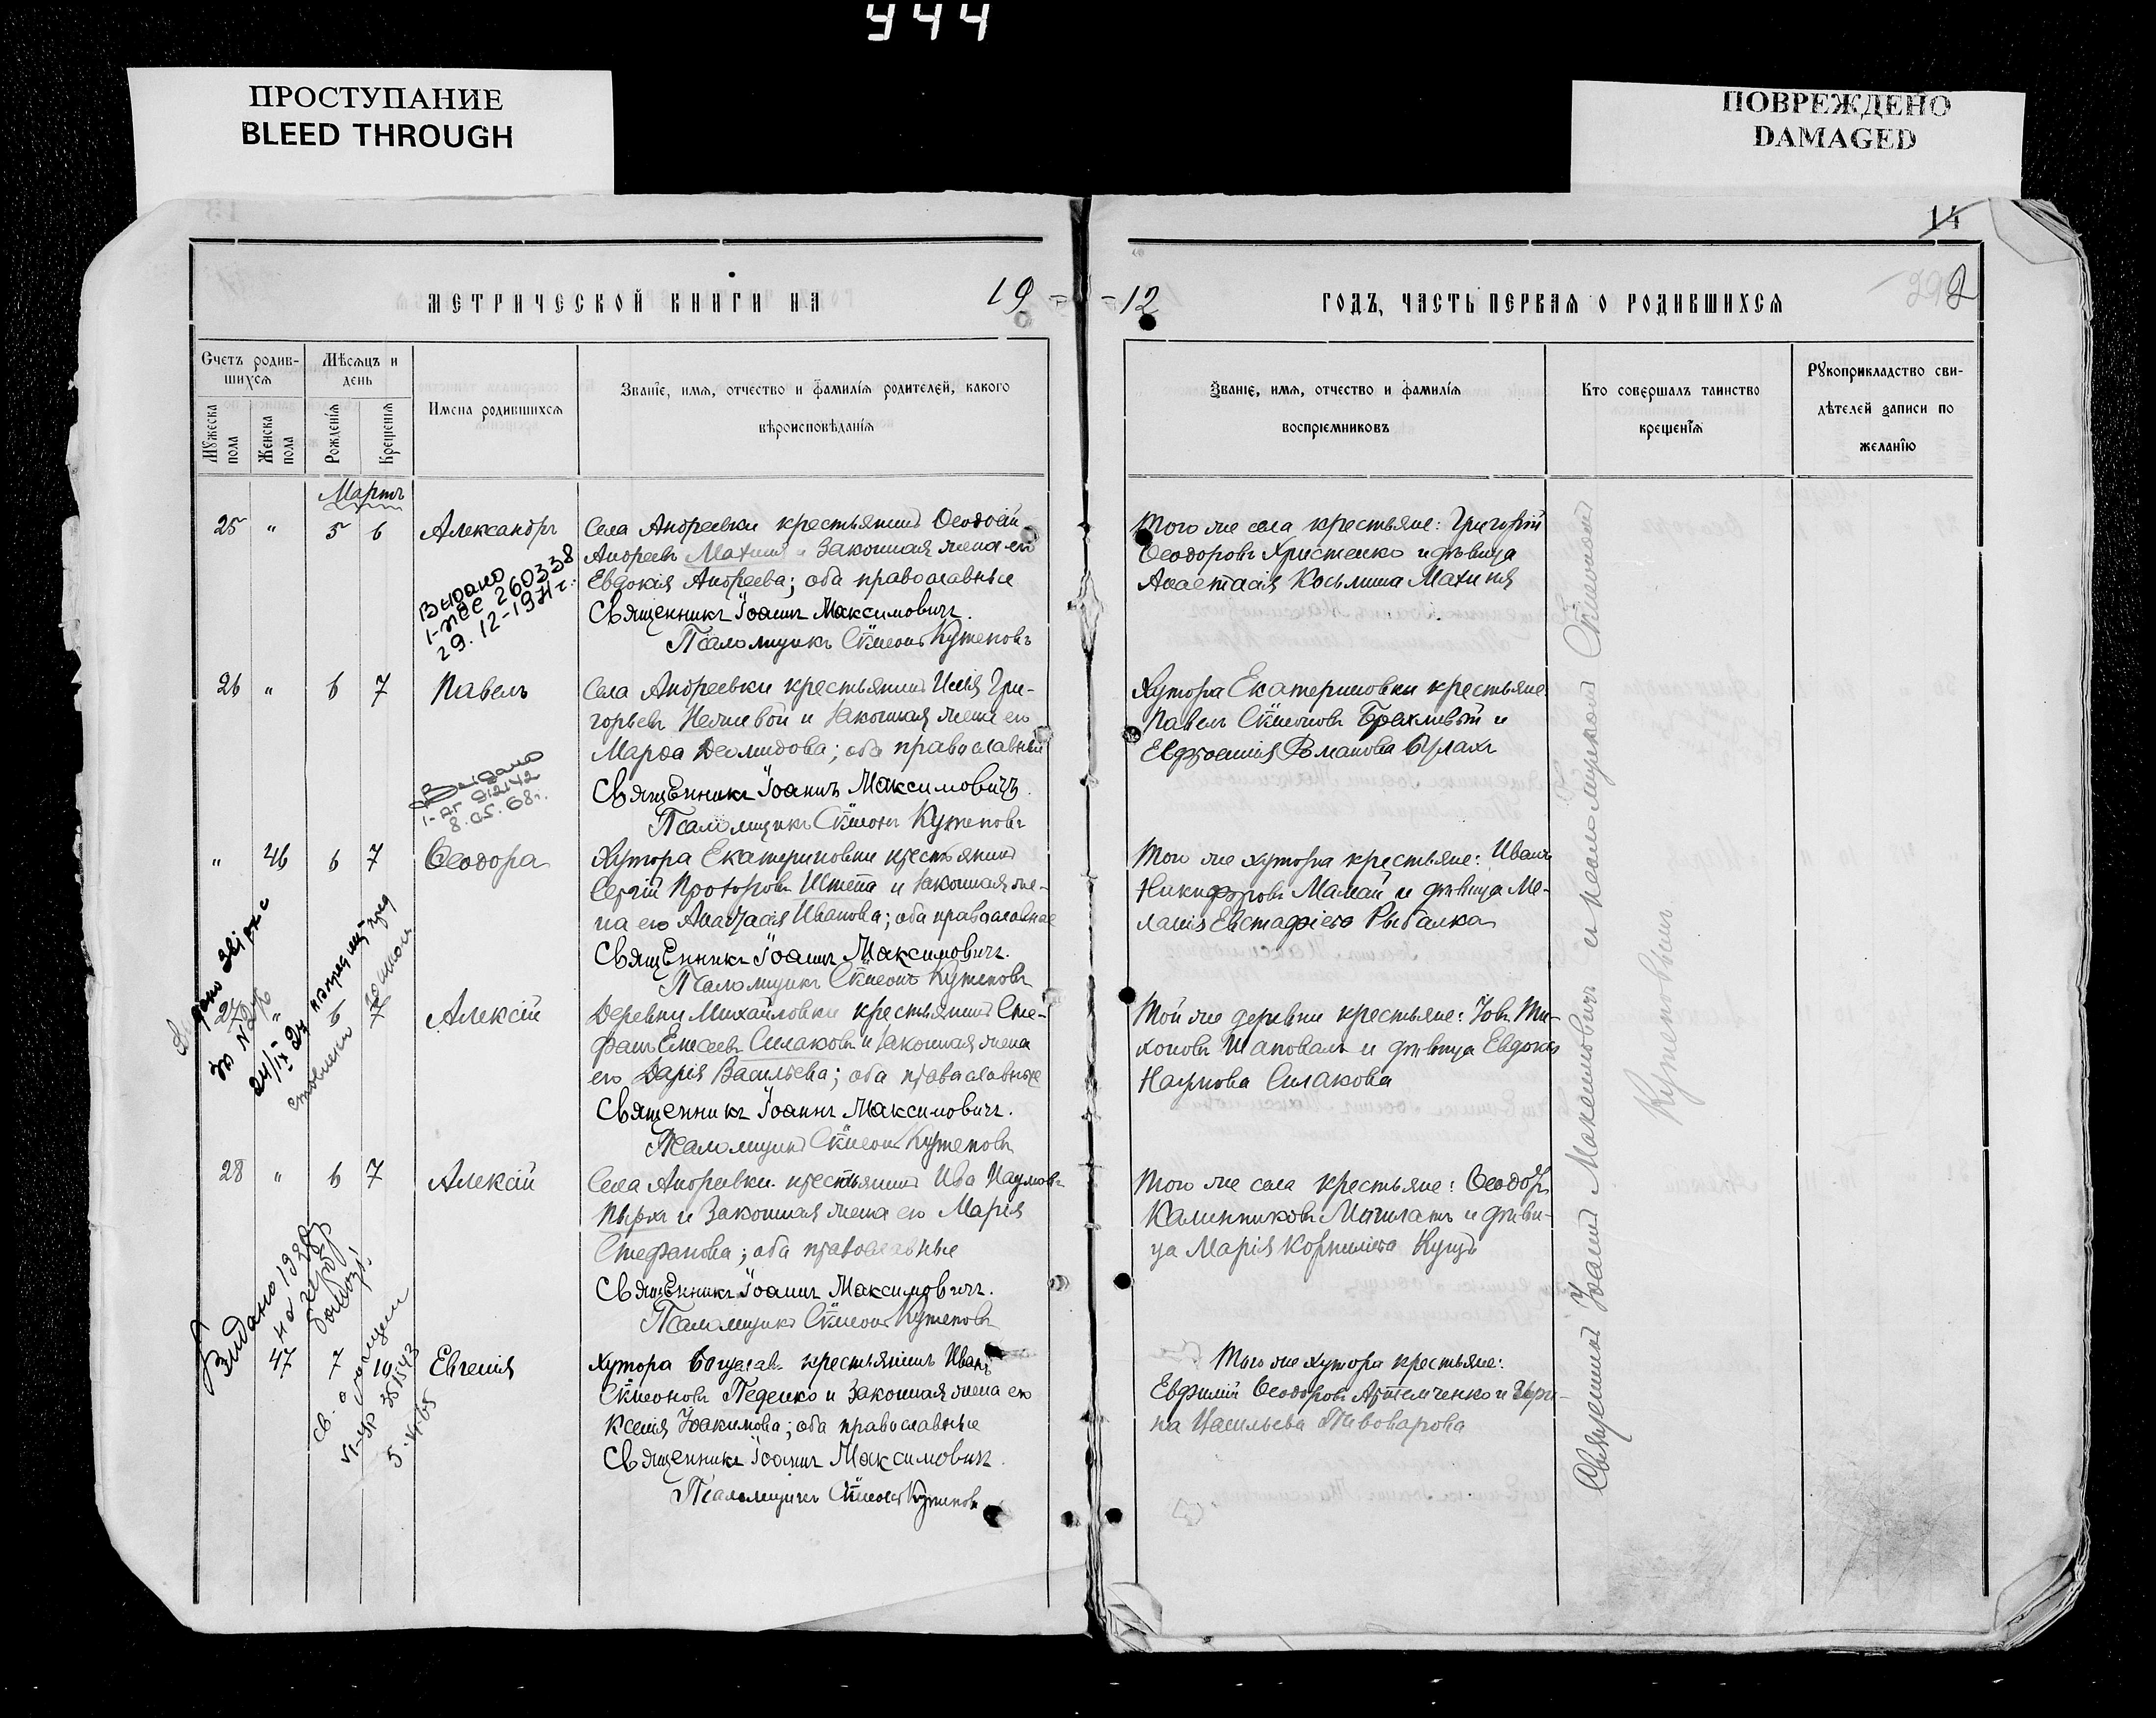 944
ПРОСТУПАНИЕ
BLEED THROUGH
ПОВРЕЖДЕНО
DAMAGED
14
МЕТРИЧЕСКОЙ КНИГИ НА 19
12 ГОДЪ, ЧАСТЬ ПЕРВАЯ О РОДИВШИХСЯ
2
Счетъ родив-
шихся
Мужеска
пола
Женска
пола
Мѣсяцъ и
день
Рожденія
Крещенія
Имена родившихся
Званіе, имя, отчество и фамилія родителей, какого
вѣроисповѣданія
Званіе, имя, отчество и фамилія
воспріемниковъ
Кто совершалъ таинство
крещенія
Рукоприкладство сви-
дѣтелей записи по
желанію
Мартъ
25 " 5 6 Александръ
Села Андреевки крестьянинъ Ѳеодосій
Андреевъ Махиня и законная жена его
Евдокія Андреева; оба православные
Священникъ Іоаннъ Максимовичъ.
Псаломщикъ Сѵмеонъ Кутеповъ
Того же села крестьяне: Григорій
Ѳеодоровъ Христенко и дѣвица
Анастасія Косьмина Махиня
Выдано
260338
29.12-1971г.
26 " 6 7 Павелъ
Села Андреевки крестьянинъ Илья Гри-
горьевъ и законная жена его
Марѳа Деомидова; оба православные
Священникъ Іоаннъ Максимовичъ.
Псаломщикъ Сѵмеонъ Кутеповъ
Хутора Екатериновки крестьяне
Павелъ Сѵмеоновъ и
Евфросинія Романова
Выдано
912142
8.05.68г.
" 46 6 7 Ѳеодора
Хутора Екатериновки крестьянинъ
Сергій Штепа и законная же-
на его Анастасія Иванова; оба православные
Священникъ Іоаннъ Максимовичъ.
Псаломщикъ Сѵмеонъ Кутеповъ
Того же хутора крестьяне: Иванъ
Никифоровъ Мамай и дѣвица Ме-
ланія Евстафіева Рыбалка
27 " 6 7 Алексій
Деревни Михайловки крестьянинъ Сте-
фанъ Елисеевъ Силаковъ и законная жена
его Дарія Васильева; оба православные
Священникъ Іоаннъ Максимовичъ.
Псаломщикъ Сѵмеонъ Кутеповъ
Той же деревни крестьяне: Іовъ Ти-
хоновъ Шаповалъ и дѣвица Евдокія
Наумова Силакова
28 " 6 7 Алексій
Села Андреевки крестьянинъ Наумовъ
и законная жена его Марія
Стефанова; оба православные
Священникъ Іоаннъ Максимовичъ.
Псаломщикъ Сѵмеонъ Кутеповъ
Того же села крестьяне: Ѳеодоръ
Калинниковъ и дѣви-
ца Марія Корниліева
47 7 10 Евгенія
Хутора крестьянинъ Иванъ
Сѵмеоновъ Педенко и законная жена его
Ксенія Іоакимова; оба православные
Священникъ Іоаннъ Максимовичъ.
Псаломщикъ Сѵмеонъ Кутеповъ
Того же хутора крестьяне:
Евфимій Ѳеодоровъ Артемченко и Ири-
на Васильева Пивоварова
Священникъ Іоаннъ Максимовичъ и псаломщикомъ Сѵмеономъ
Кутеповымъ